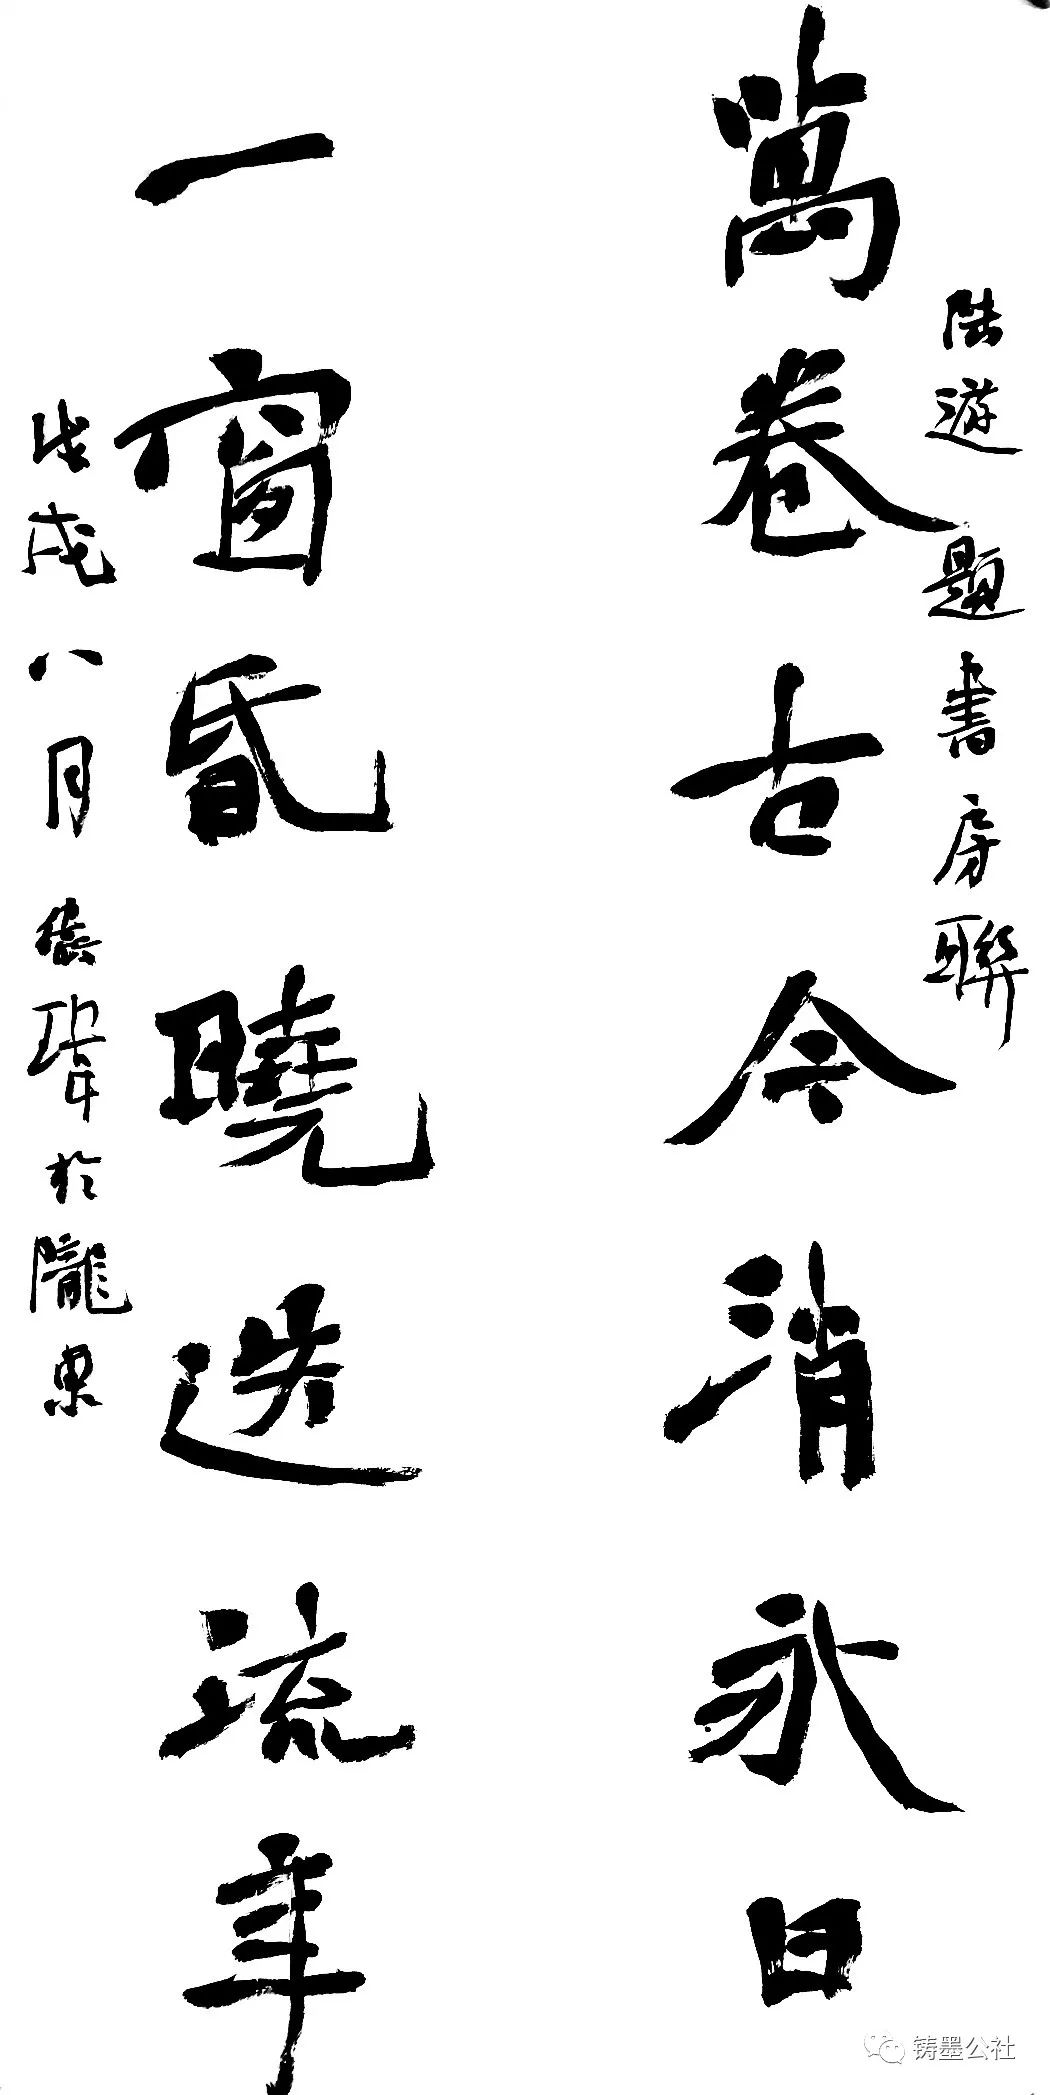 陸遊題書房聯
萬卷古今消永日
一窗昏曉送流年
戊戌八月於隴東
铸墨公社